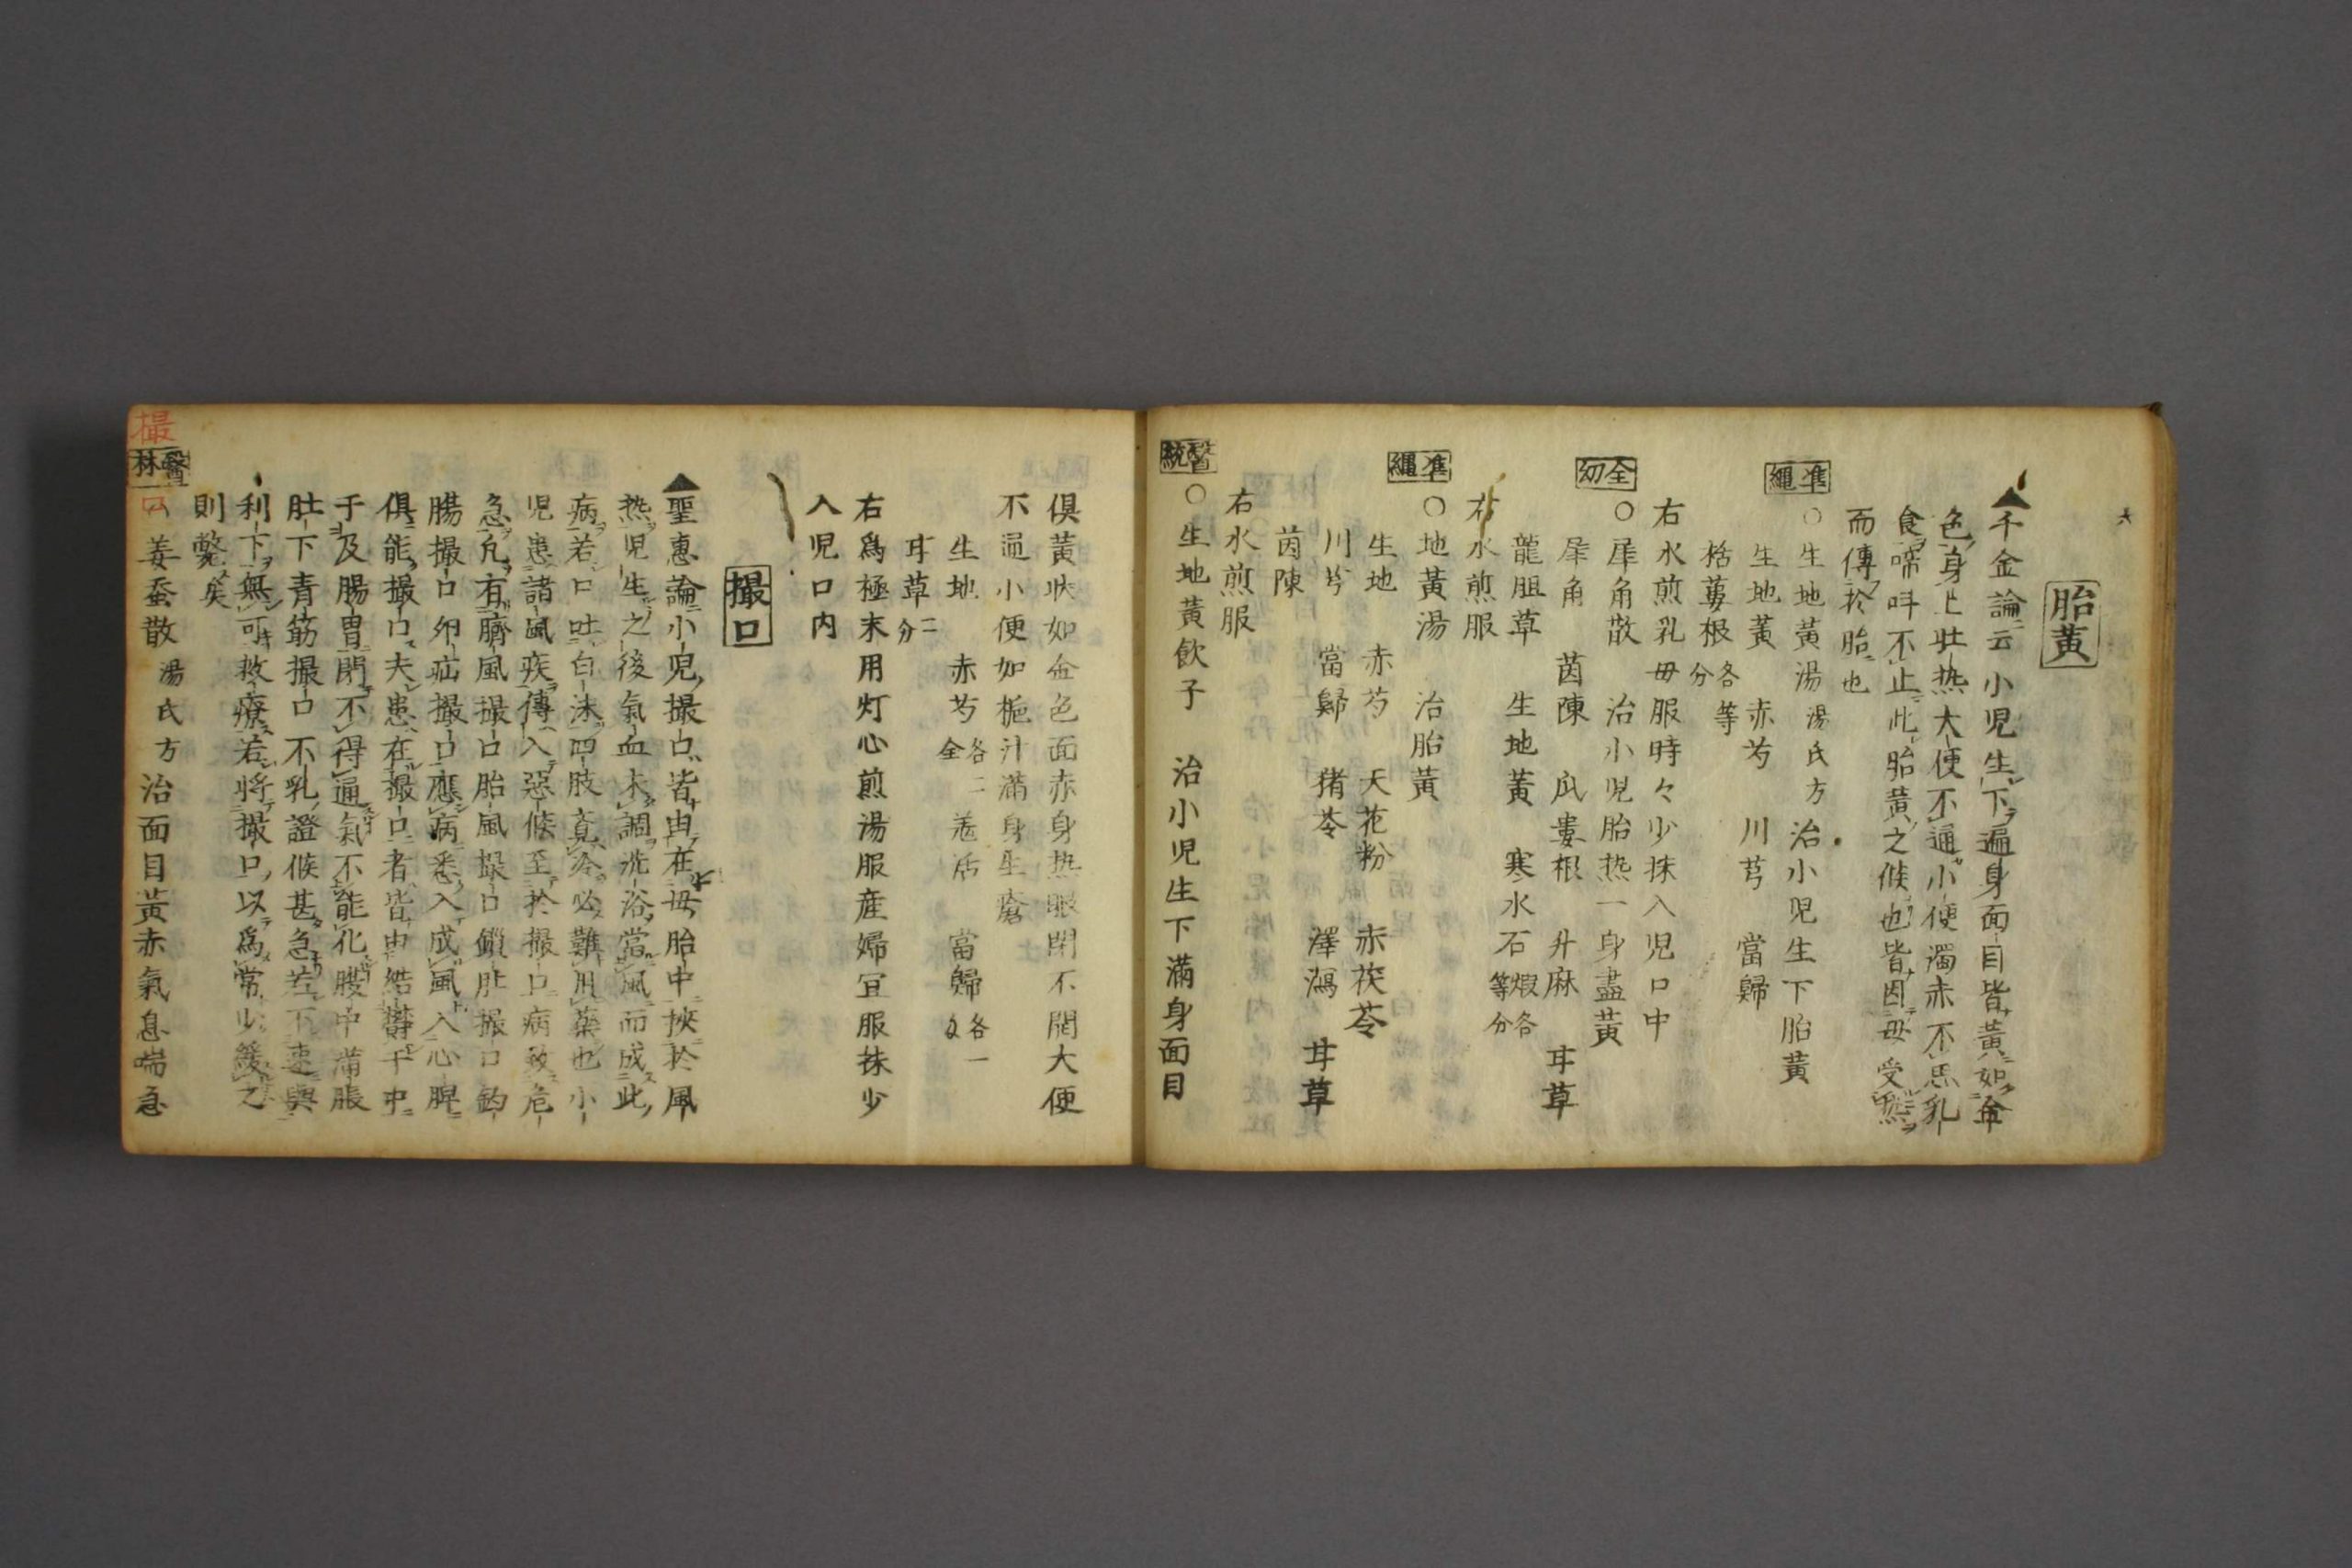 胎黃
千金論云小児生下遍身面目皆黃如金
色身上壮热大便不通小便濁赤不思乳
食啼呌不止此胎黃之候也皆因母受熱
而傳於胎也
準繩
○生地黃湯湯氏方治小児生下胎黃
生地黃 赤芍 川芎 當歸
栝蔞根各等分
右水煎乳母服時々少抹入児口中
全幼
○犀角散 治小児胎热一身盡黃
犀角 茵陳 瓜蔞根 升麻 甘草
龍胆草 生地黃 寒水石煅各等分
右水煎服
準繩
○地黃湯 治胎黃
生地 赤芍 天花粉 赤茯苓
川芎 當歸 猪苓 澤瀉 甘草
茵陳
右水煎服
醫統
○生地黃飲子 治小児生下滿身面目
俱黃狀如金色面赤身热眼閉不開大便
不通小便如梔汁滿身生瘡
生地 赤芍各二全 羗活 當歸各一
甘草二分
右爲極末用灯心煎湯服産婦宜服抹少
入児口内
撮口
聖惠論小児撮口皆由在母胎中挾於風
热児生之後氣血未調洗浴當風而成此
病若口吐白沫四肢竟冷必難用藥也小
児患諸風疾傳入惡候至於撮口病致危
急凢有臍風撮口胎風撮口鎖肚撮口鈎
腸撮口夘疝撮口應病悉入成風入心脾
俱能撮口夫患在撮口者皆由結欝于中
于及腸胃閉不得通氣不能化腹中滿脹
肚下青筋撮口不乳證候甚急若不速與
利下無可救療若將撮口以爲常少緩之
則斃矣
撮口
醫林
姜蚕散湯氏方治面目黃赤氣息喘急